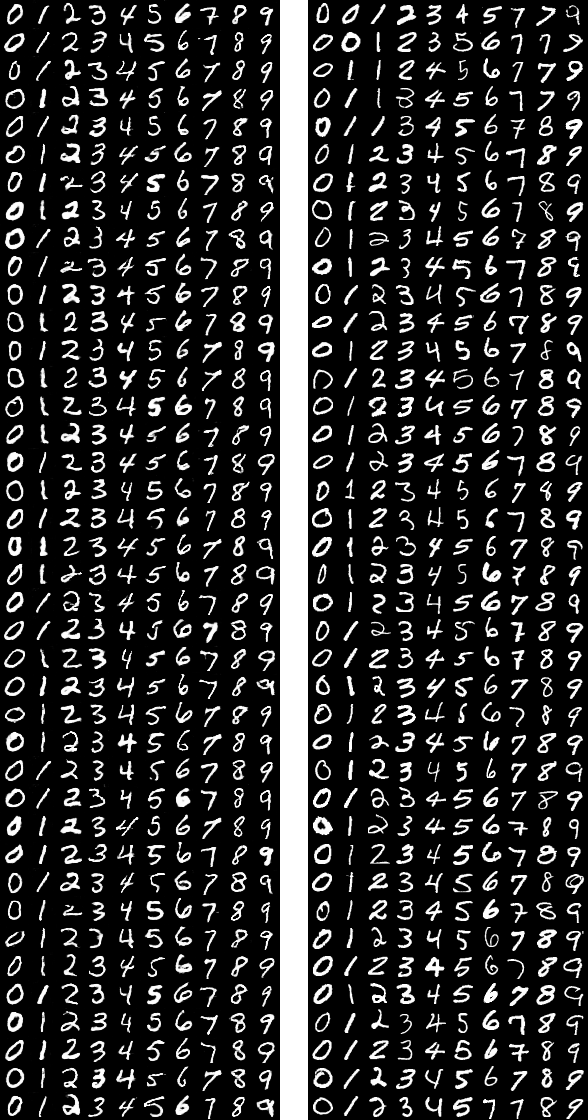 0 1 2 3 4 5 6 7 8 9
0 1 2 3 4 5 6 7 8 9
0 1 2 3 4 5 6 7 8 9
0 1 2 3 4 5 6 7 8 9
0 1 2 3 4 5 6 7 8 9
0 1 2 3 4 5 6 7 8 9
0 1 2 3 4 5 6 7 8 9
0 1 2 3 4 5 6 7 8 9
0 1 2 3 4 5 6 7 8 9
0 1 2 3 4 5 6 7 8 9
0 1 2 3 4 5 6 7 8 9
0 1 2 3 4 5 6 7 8 9
0 1 2 3 4 5 6 7 8 9
0 1 2 3 4 5 6 7 8 9
0 1 2 3 4 5 6 7 8 9
0 1 2 3 4 5 6 7 8 9
0 1 2 3 4 5 6 7 8 9
0 1 2 3 4 5 6 7 8 9
0 1 2 3 4 5 6 7 8 9
0 1 2 3 4 5 6 7 8 9
0 1 2 3 4 5 6 7 8 9
0 1 2 3 4 5 6 7 8 9
0 1 2 3 4 5 6 7 8 9
0 1 2 3 4 5 6 7 8 9
0 1 2 3 4 5 6 7 8 9
0 1 2 3 4 5 6 7 8 9
0 1 2 3 4 5 6 7 8 9
0 1 2 3 4 5 6 7 8 9
0 1 2 3 4 5 6 7 8 9
0 1 2 3 4 5 6 7 8 9
0 1 2 3 4 5 6 7 8 9
0 1 2 3 4 5 6 7 8 9
0 1 2 3 4 5 6 7 8 9
0 1 2 3 4 5 6 7 8 9
0 1 2 3 4 5 6 7 8 9
0 1 2 3 4 5 6 7 8 9
0 1 2 3 4 5 6 7 8 9
0 1 2 3 4 5 6 7 8 9
0 1 2 3 4 5 6 7 8 9
0 1 2 3 4 5 6 7 8 9
0 0 1 2 3 4 5 7 7 9
0 0 1 2 3 5 6 7 7 9
0 1 1 2 4 5 6 7 7 9
0 1 1 3 4 5 6 7 7 9
0 1 1 3 4 5 6 7 8 9
0 1 2 3 4 5 6 7 8 9
0 1 2 3 4 5 6 7 8 9
0 1 2 3 4 5 6 7 8 9
0 1 2 3 4 5 6 7 8 9
0 1 2 3 4 5 6 7 8 9
0 1 2 3 4 5 6 7 8 9
0 1 2 3 4 5 6 7 8 9
0 1 2 3 4 5 6 7 8 9
0 1 2 3 4 5 6 7 8 9
0 1 2 3 4 5 6 7 8 9
0 1 2 3 4 5 6 7 8 9
0 1 2 3 4 5 6 7 8 9
0 1 2 3 4 5 6 7 8 9
0 1 2 3 4 5 6 7 8 9
0 1 2 3 4 5 6 7 8 9
0 1 2 3 4 5 6 7 8 9
0 1 2 3 4 5 6 7 8 9
0 1 2 3 4 5 6 7 8 9
0 1 2 3 4 5 6 7 8 9
0 1 2 3 4 5 6 7 8 9
0 1 2 3 4 5 6 7 8 9
0 1 2 3 4 5 6 7 8 9
0 1 2 3 4 5 6 7 8 9
0 1 2 3 4 5 6 7 8 9
0 1 2 3 4 5 6 7 8 9
0 1 2 3 4 5 6 7 8 9
0 1 2 3 4 5 6 7 8 9
0 1 2 3 4 5 6 7 8 9
0 1 2 3 4 5 6 7 8 9
0 1 2 3 4 5 6 7 8 9
0 1 2 3 4 5 6 7 8 9
0 1 2 3 4 5 6 7 8 9
0 1 2 3 4 5 6 7 8 9
0 1 2 3 4 5 6 7 8 9
0 1 2 3 4 5 7 7 8 9